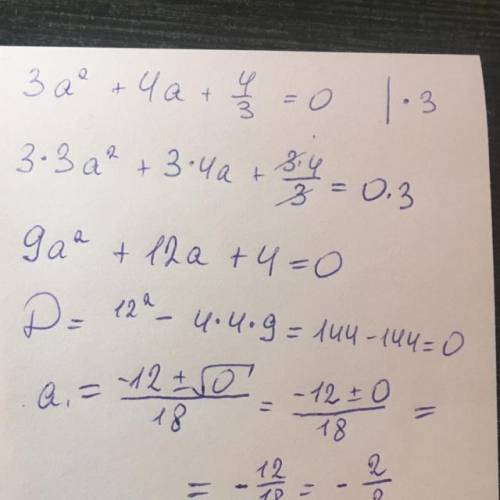 3a² + 4a + 4/3 = 0 | · 3
3·3a² + 3·4a + 3·4/3 = 0·3
9a² + 12a + 4 = 0
D = 12² - 4·4·9 = 144 - 144 = 0
a₁ = -12 ± √0/18 = -12 ± 0/18 =
= - 12/18 = - 2/3